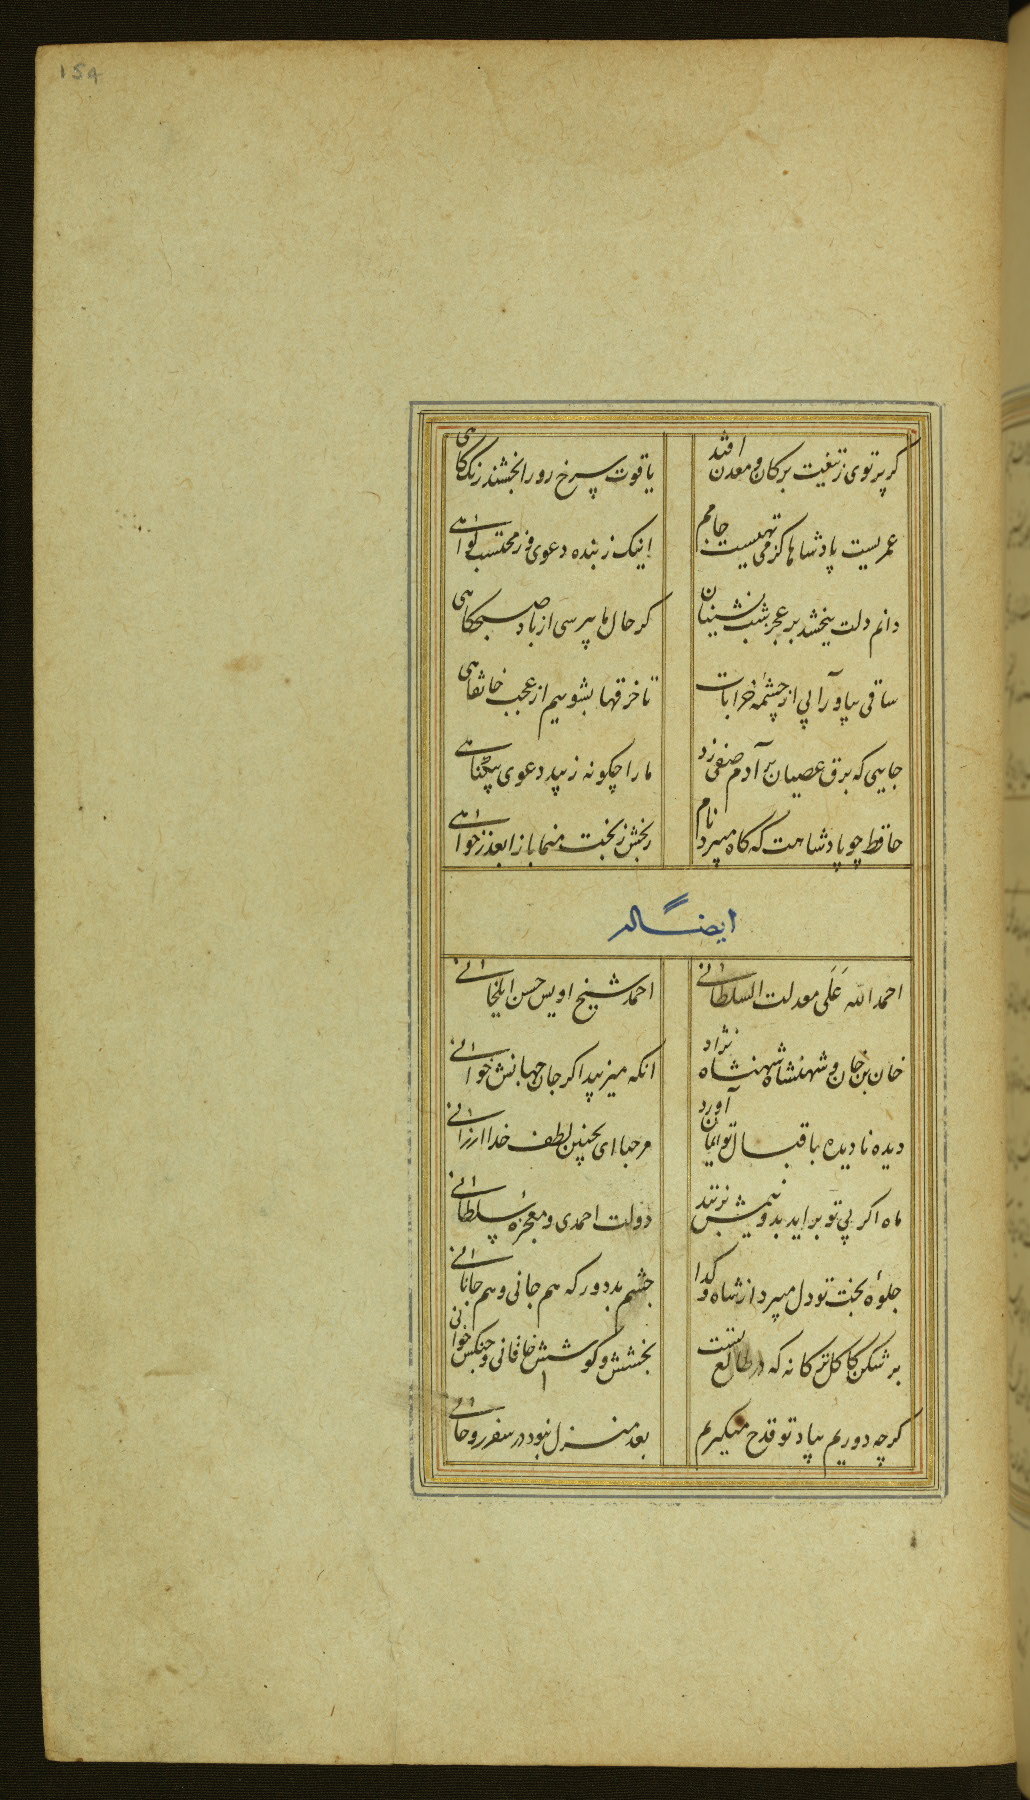 159
کر پرتوی ز تیغت بر کان و معدن افتد
یاقوت سرخ رو را بخشند رنگ کاهی
عمریست پادشاها کز می تهیست جامم
اینک ز بنده دعوی وز محتسب کواهی
دانم دلت ببخشد بر عجز شب نشینان
کر حال ما بپرسی از باد صبحکاهی
ساقی بیاور آبی از چشمۀ خرابات
تا خرقها بشوییم از عجب خانقاهی
جایی که برق عصیان بر آدم صفی زد
ما را چکونه زیبد دعوی بیکناهی
حافظ چو پادشاهت که کاه میبرد نام
رنجش ز بخت منما باز ا بعذر خواهی
ایضا له
احمد الله عَلَی معدلت السلطانی
احمد شیخ اویس حسن ایلخانی
خان بن خان و شهنشاه شهنشاه نژاد
انکه میزیبد اکر جان جهانش خوانی
دیده نادیده باقبال تو ایمان آورد
مرحبا ای بچنین لطف خدا ارزانی
ماه اکر بی تو براید بدو نیمش بزنند
دولت احمدی و معجزۀ سلطانی
جلوۀ بخت تو دل میبرد از شاه و کدا
چشم بد دور که هم جانی و هم جانانی
بر شکن کاکل ترکانه که در طالع تست
بخشش و کوشش خاقانی و چنکس خوانی
کرچه دوریم بیاد تو قدح میکیریم
بعد منزل نبود در سفر روحانی